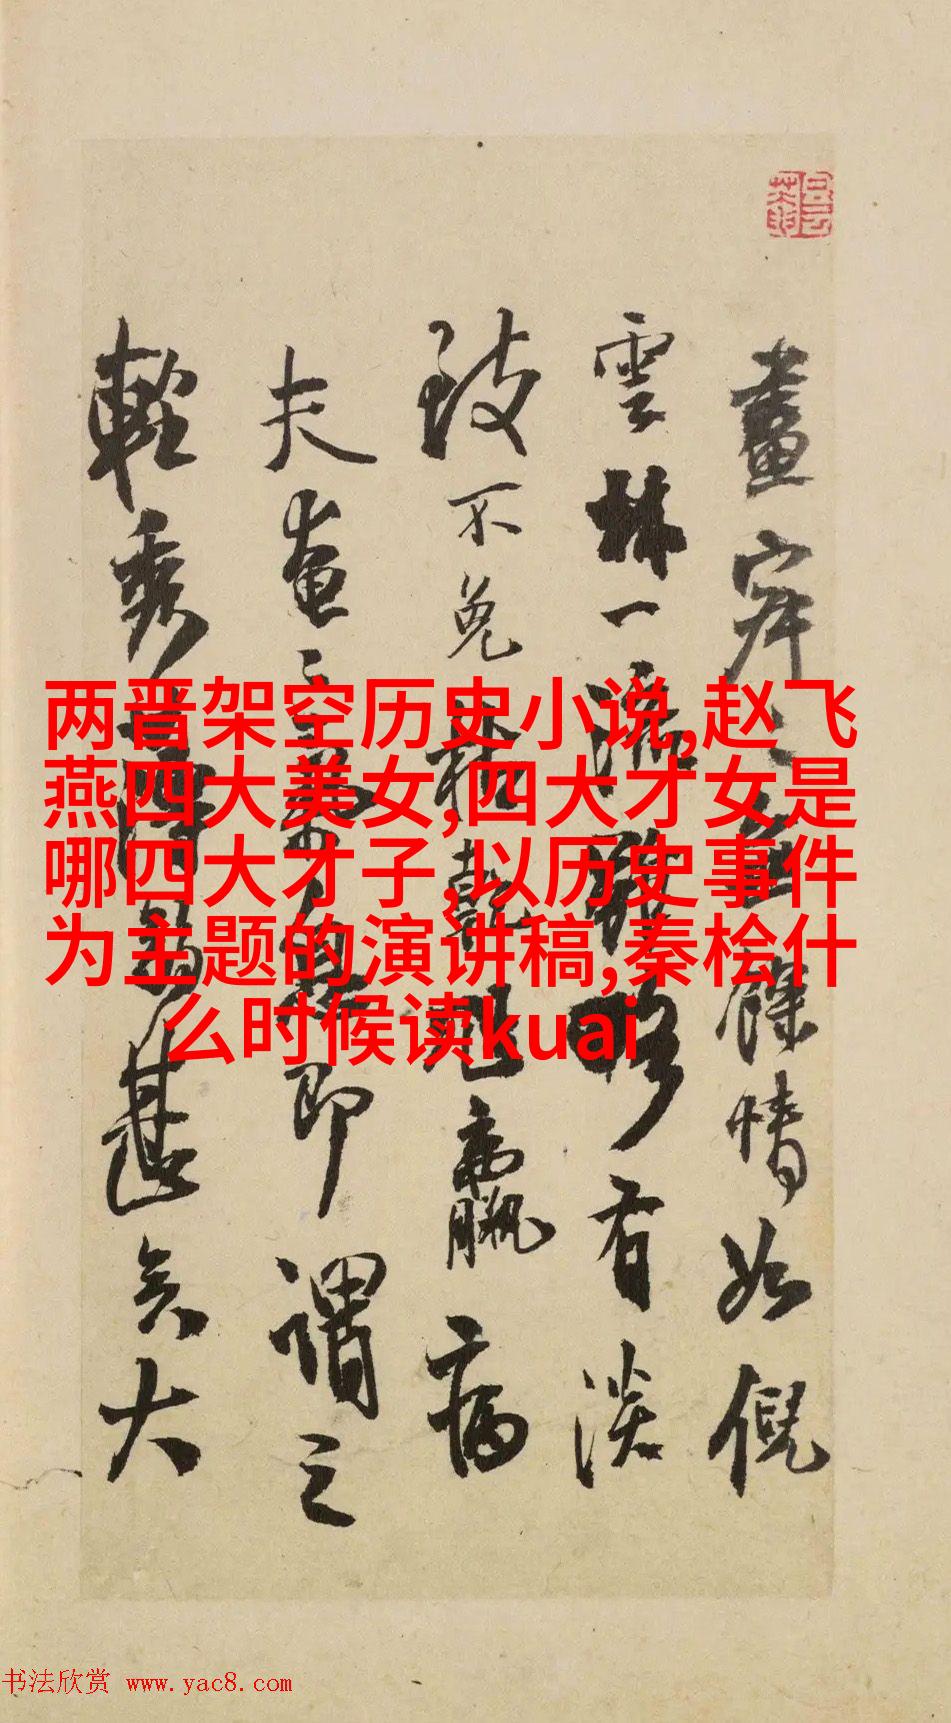 畫 餘情如倪
雲林一派 略有淡
致不免枯 羸病
夫奄 即謂之
輕秀 甚矣大
两晋架空历史小说,赵飞
燕四大美女,四大才女是
哪四大才子,以历史事件
为主题的演讲稿,秦桧什
么时候读kuai
书法欣赏 www.yac8.com